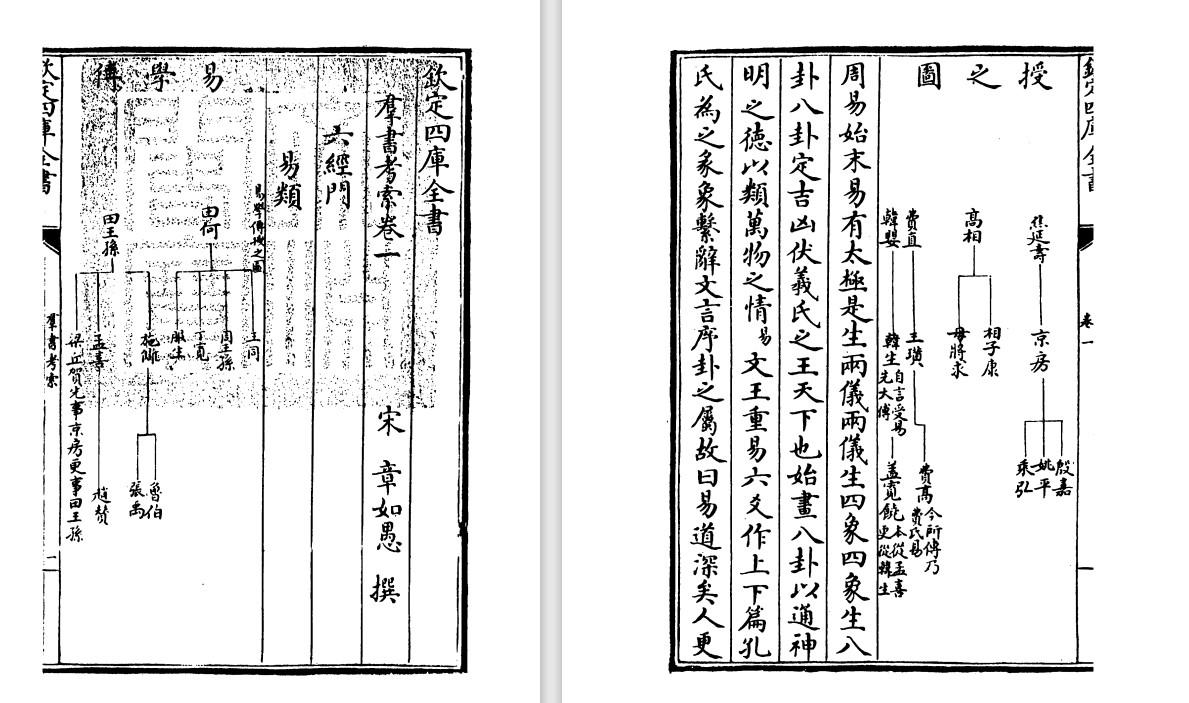 欽定四庫全書
羣書考索卷一
宋 章如愚 撰
六經門
易類
易學傳授之圖
易學傳
田何
王同
周王孫
丁寬
服生
田王孫
施讎
魯伯
張禹
孟喜
趙賛
梁丘賀先事京房更事田王孫
欽定四庫全書
羣書考索
一
欽定四庫全書
卷一
授之圖
焦延壽
京房
殷嘉
姚平
乘弘
高相
相子康
毋將求
費直
王璜
費髙今所傳乃費氏易
韓嬰
韓生自言受易先大傅
盖寛饒本從孟喜更從韓生
周易始末易有太極是生兩儀兩儀生四象四象生八
卦八卦定吉凶伏羲氏之王天下也始畫八卦以通神
明之德以類萬物之情易文王重易六爻作上下篇孔
氏為之彖象繫辭文言序卦之屬故曰易道深矣人更